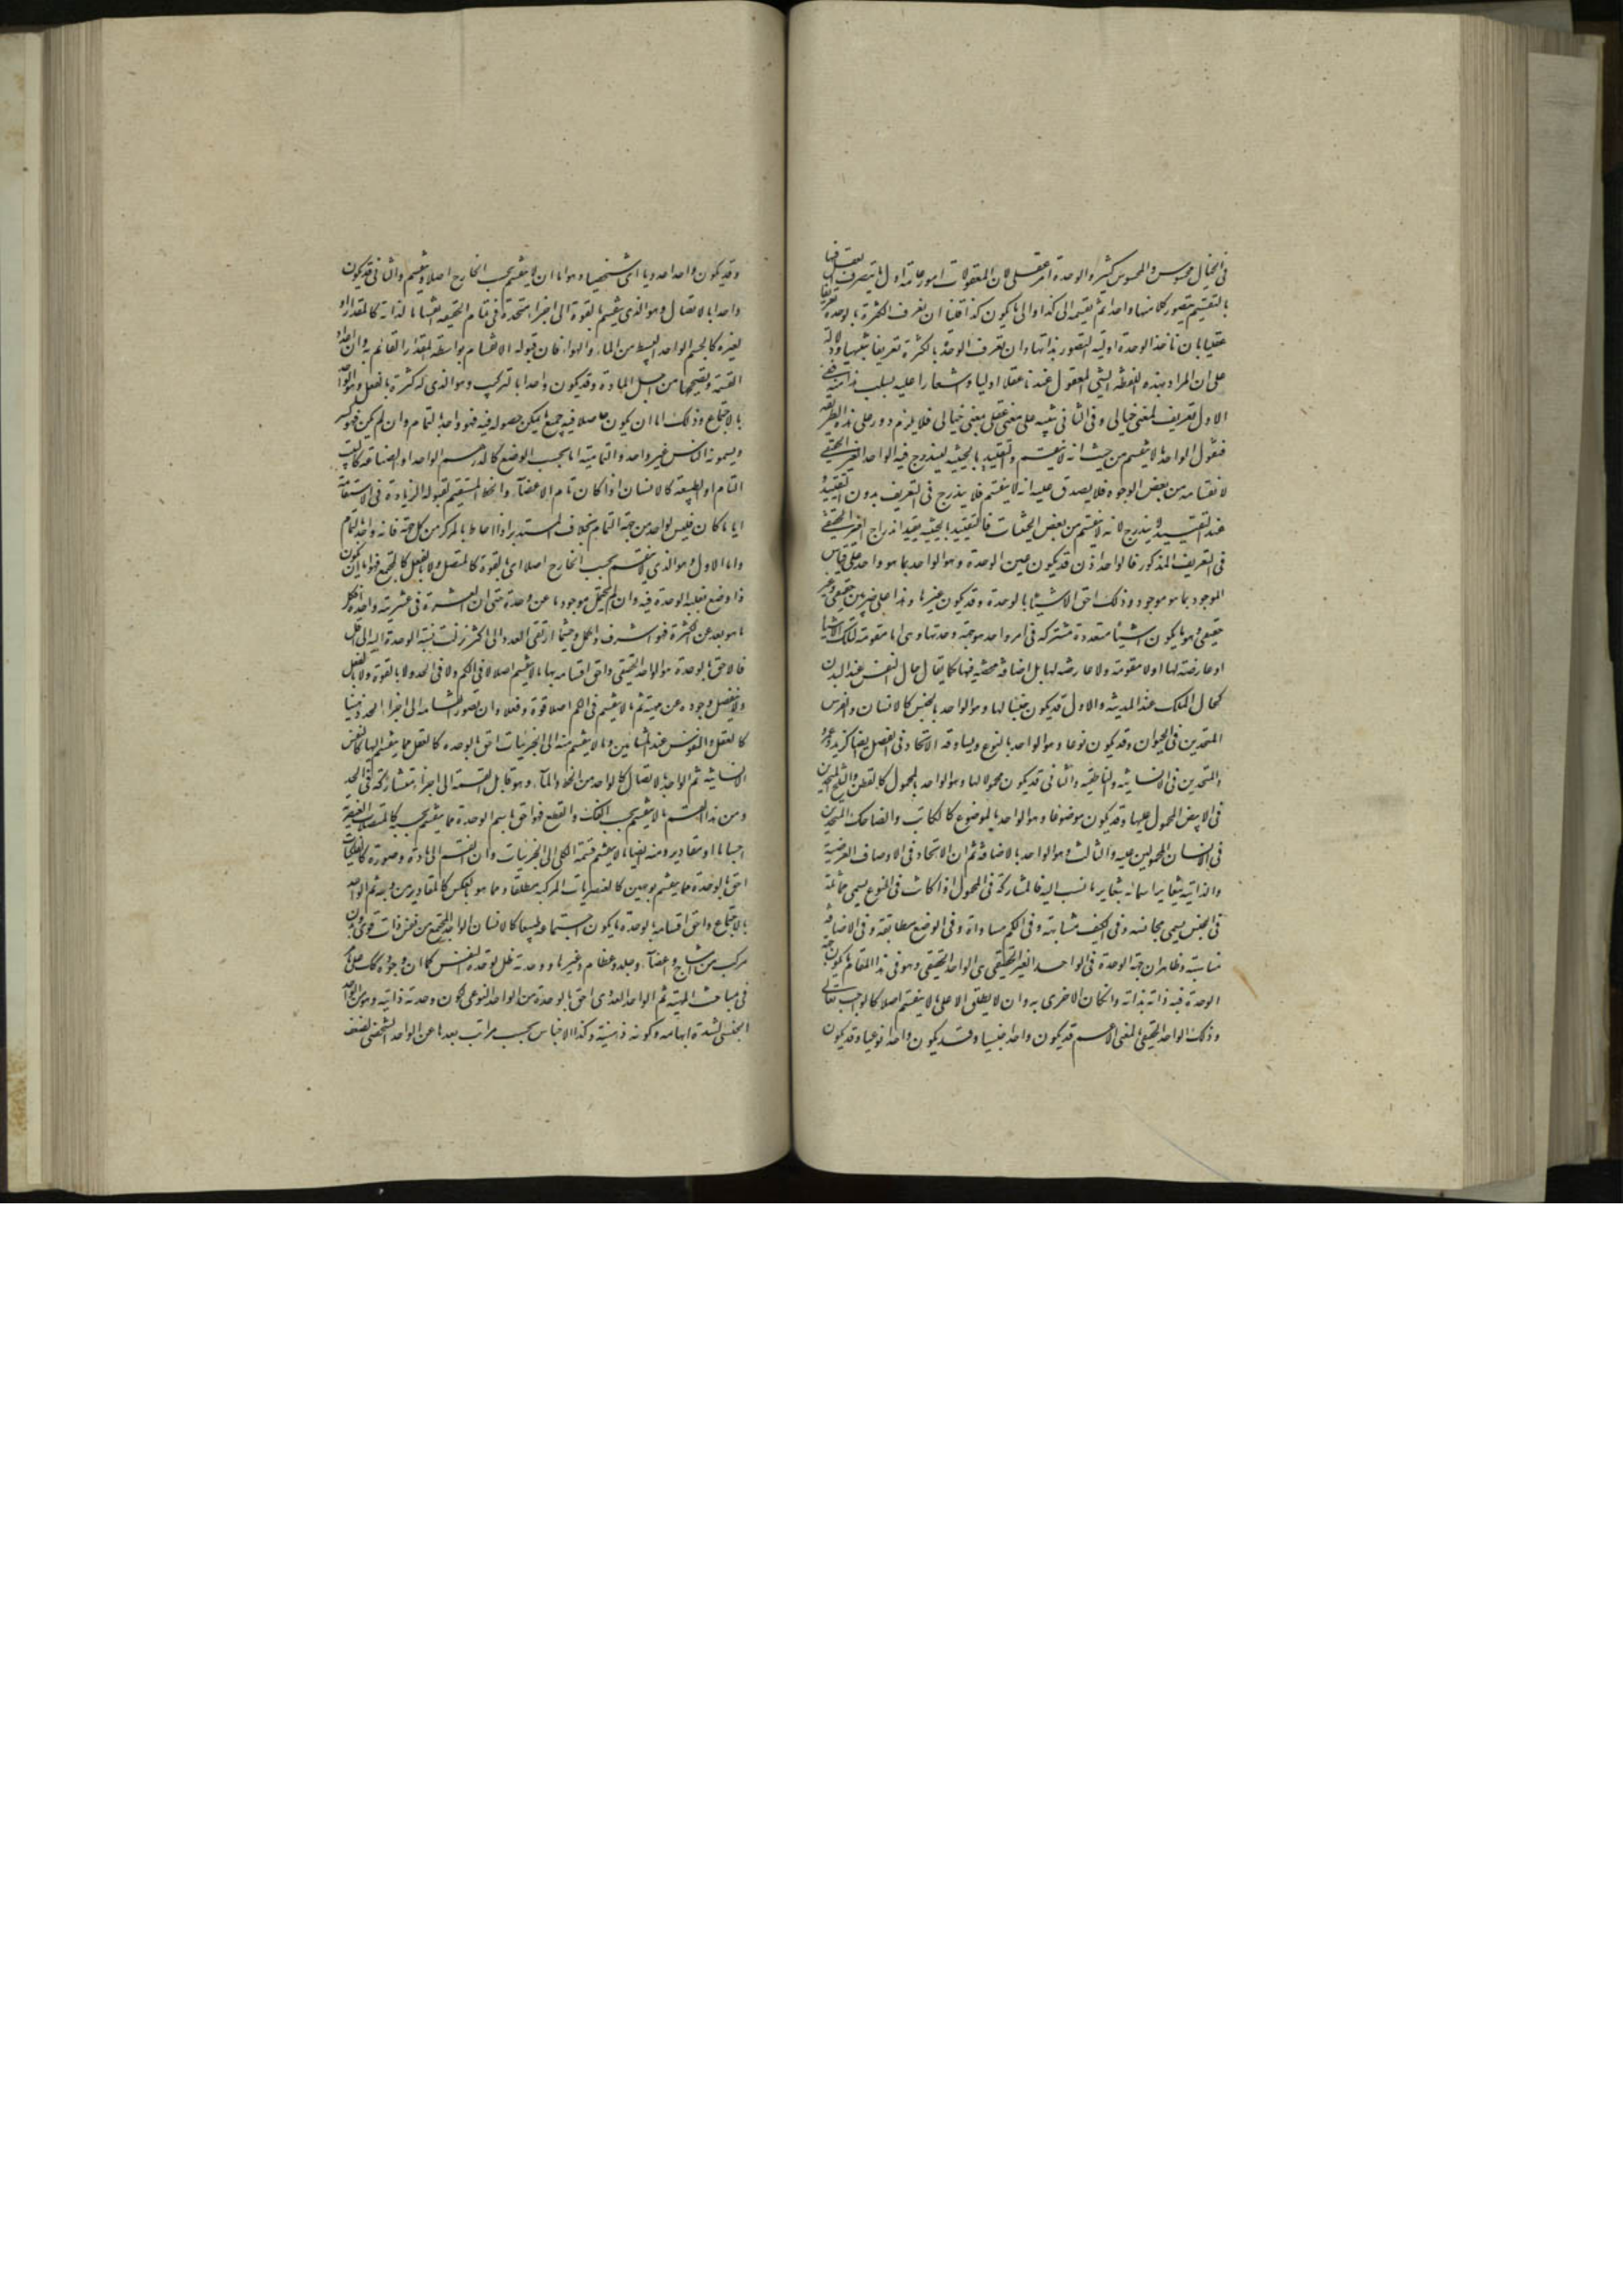 في الخيال محسوس والمحسوس كثير والوحدة امر عقلي لان المعقولات امور عامة اول ما يتصرف العقل فيها
بالتقسيم يتصور كلا منها واحدا ثم يقسمه الى كذا والى ما يكون كذا قلنا ان نعرف الكثرة بالوحدة تعريفا
عقليا بان ناخذ الوحدة اولية التصور بذاتها وان نعرف الوحدة بالكثرة تعريفا تنبيهيا ودلالة
على ان المراد بهذه اللفظة الشي المعقول عندنا عقلا اوليا واشعارا عليه بسلب هذا منه ففي
الاول تعريف لمعنى خيالي وفي الثاني تنبيه على معنى عقلي بمعنى خيالي فلا يلزم دور على هذه الطريقة
فنقول الواحد ما لا ينقسم من حيث انه لا ينقسم والتقييد بالحيثية ليندرج فيه الواحد الغير الحقيقي
لانقسامه من بعض الوجوه فلا يصدق عليه انه لا ينقسم فلا يندرج في التعريف بدون التقييد
عند التقييد يندرج لانه لا ينقسم من بعض الحيثيات فالتقييد بالحيثية يفيد اندراج الغير الحقيقي
في التعريف المذكور فالواحد اذن قد يكون عين الوحدة وهو الواحد بما هو واحد على قياس
الموجود بما هو موجود وذلك احق الاشياء بالوحدة وقد يكون غيرها وهذا على ضربين حقيقي وغير
حقيقي وهو ما يكون اشياء متعددة مشتركة في امر واحد هو جهة وحدتها وهي اما مقومة لتلك الاشياء
او عارضة لها او لا مقومة ولا عارضة لها بل اضافة محضة فيها كما يقال حال النفس عند البدن
كحال الملك عند المدينة والاول قد يكون جنسا لها وهو الواحد بالجنس كالانسان والفرس
المتحدين في الحيوان وقد يكون نوعا وهو الواحد بالنوع ويساوقه الاتحاد في الفصل ايضا كزيد وعمرو
المتحدين في الانسانية والناطقية والثاني قد يكون محمولا لها وهو الواحد بالمحمول كالقطن والثلج المتحدين
في الابيض المحمول عليها وقد يكون موضوعا وهو الواحد بالموضوع كالكاتب والضاحك المتحدين
في الانسان المحمولين عليه والثالث وهو الواحد بالاضافة ثم ان الاتحاد في الاوصاف العرضية
والذاتية يتغاير اسمائه بتغاير ما نسب اليه فالمشاركة في المحمول اذا كانت في النوع يسمى مماثلة
في الجنس يسمى مجانسة وفي الكيف مشابهة وفي الكم مساواة وفي الوضع مطابقة وفي الاضافة
مناسبة وظاهر ان جهة الوحدة في الواحد الغير الحقيقي هي الواحد الحقيقي وهو في هذا المقام ما يكون جهة
الوحدة فيه ذاته بذاته وان كان الاحرى به ان لا يطلق الا على ما لا ينقسم اصلا كالواجب تعالى
وذلك الواحد الحقيقي بالمعنى الاعم قد يكون واحدا جنسيا وقد يكون واحدا نوعيا وقد يكون
وقد يكون واحدا عدديا اي شخصيا وهو اما ان لا ينقسم بحسب الخارج اصلا او ينقسم والثاني قد يكون
واحدا بالاتصال وهو الذي ينقسم بالقوة الى اجزاء متحدة في تمام الحقيقة انقساما لذاته كالمقدار او
لغيره كالجسم الواحد البسيط من الماء والهواء فان قبوله الانقسام بواسطة المقدار القائم به وان اعداد
القسمة وتصحيحها من اجل المادة وقد يكون واحدا بالتركيب وهو الذي له كثرة بالفعل وهو الواحد
بالاجتماع وذلك اما ان يكون حاصلا فيه جميع ما يمكن حصوله فيه فهو واحد بالتمام وان لم يكن فهو كسر
ويسمونه الناس غير واحد والتمامية اما بحسب الوضع كالدرهم الواحد او الصناعة كالبيت
التام او الطبيعة كالانسان اذا كان تام الاعضاء والخط المستقيم لقبوله الزيادة في الاستقامة
ايا ما كان فليس لواحد من جهة التمام بخلاف المستدير اذا احاط بالمركز من كل جهة فانه واحد بالتمام
واما الاول وهو الذي لا ينقسم بحسب الخارج اصلا اي بالقوة كالمتصل ولا بالفعل كالمجتمع فهو اما ان يكون
ذا وضع بغلبة الوحدة فيه وان لم يخل موجود ما عن وحدة حتى ان العشرة في عشريته واحدة فكل
ما هو بعد عن الكثرة فهو اشرف واكمل وحيثما ارتقى العدد الى اكثر نزلت نسبة الوحدة اليه الى اقل
فالاحق بالوحدة هو الواحد الحقيقي واحق اقسامه بها ما لا ينقسم اصلا لا في الكم ولا في الحد ولا بالقوة ولا بالفعل
ولا ينفصل وجوده عن مهيته ثم ما لا ينقسم في الكم اصلا قوة وفعلا وان تصور انقسامه الى اجزاء الحد ذهنا
كالعقل والنفوس عند المشائين وما لا ينقسم منه الى الجزئيات احق بالوحدة كالعقل مما ينقسم اليها كالنفس
الانسانية ثم الواحد بالاتصال كالواحد من الخط والماء وهو قابل القسمة الى اجزاء متشاركة في الحد
ومن هذا القسم ما لا ينقسم بحسب الفك والقطع فهو احق باسم الوحدة مما ينقسم بحسبه كالمتصلات الغيرية
اجساما او مقادير ومنه ايضا ما لا ينقسم قسمة الكلي الى الجزئيات وان انقسم الى مادة وصورة كالفلكيات
احق بالوحدة مما ينقسم بوجهين كالعنصريات المركبة مطلقا ومما هو بالعكس كالمقادير من وجه ثم الواحد
بالاجتماع واحق اقسامه بالوحدة ما يكون اجتماعه طبيعيا كالانسان الواحد المجتمع من نفس ذات قوى وبدن
مركب من امشاج واعضاء وجلد وعظام وغيرها ووحدته ظل لوحدة النفس كما ان وجوده كذلك على ما مر
في مباحث المهية ثم الواحد العددي احق بالوحدة من الواحد النوعي لكون وحدته ذاتية وهو من الواحد
الجنسي لشدة ابهامه وكونه ذهنية وكذا الاجناس بحسب مراتب بعدها عن الواحد الشخصي لضعف